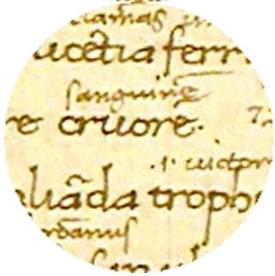 ucētia ferr
sanguinē
re cruore.
.i. uictor
liāda troph
rdanus